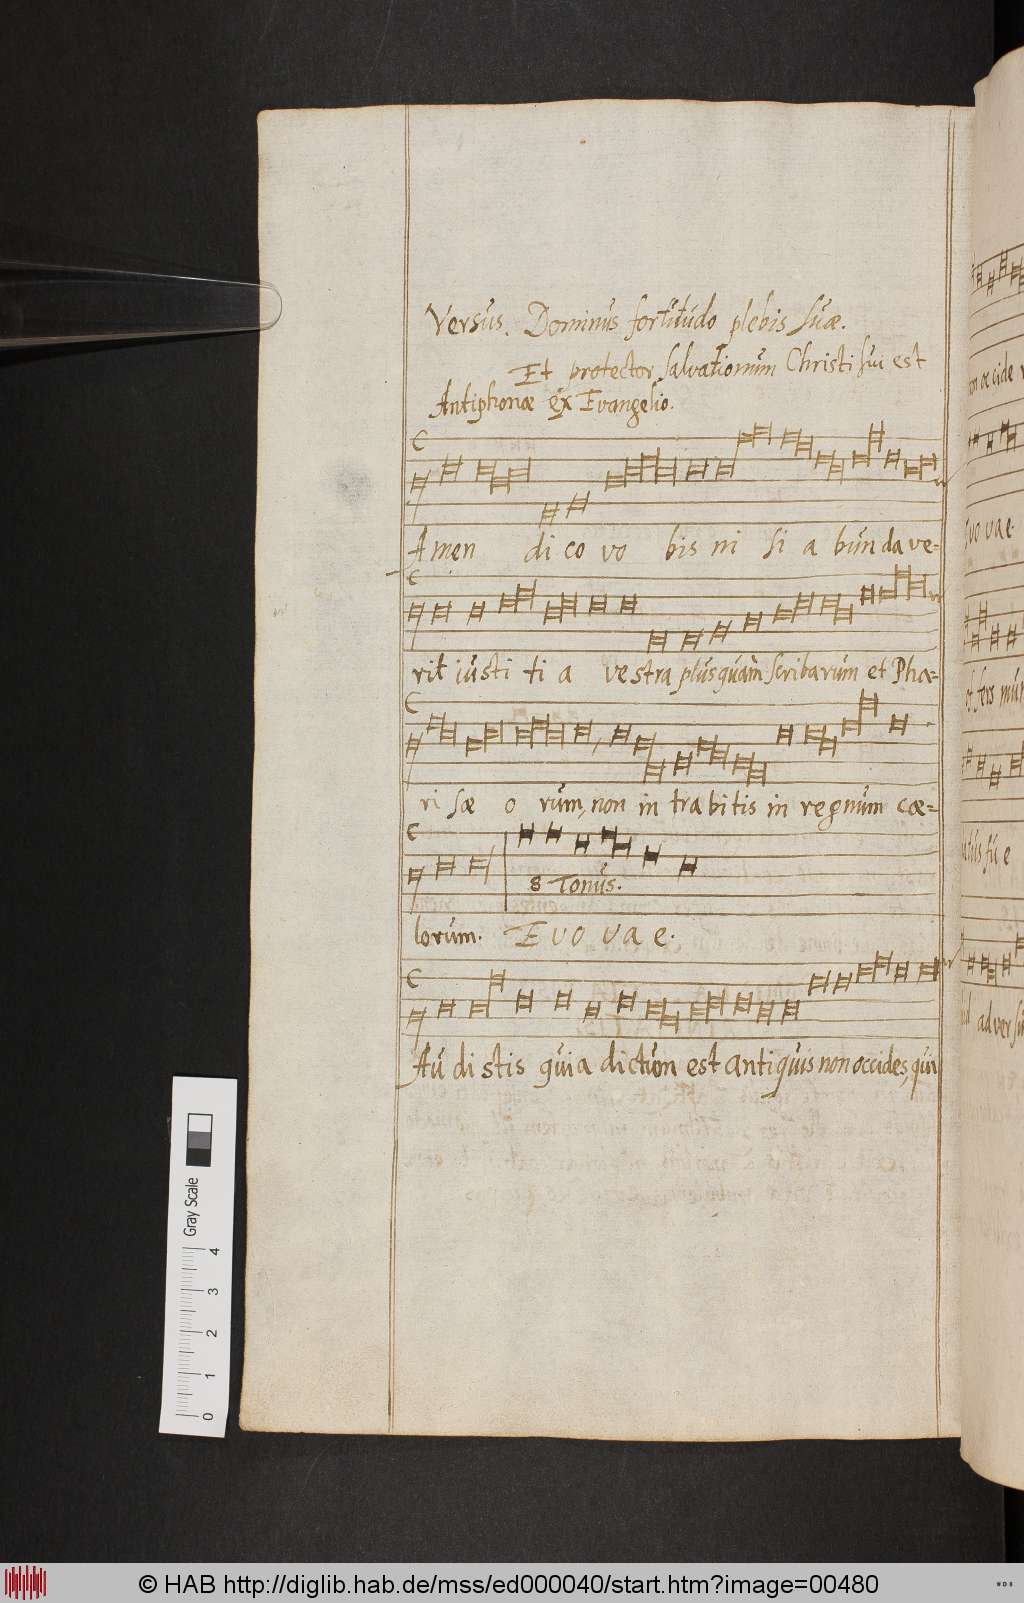 Versus. Dominus fortitudo plebis suæ.
Et protector salvationum Christi sui est
Antiphonæ ex Evangelio.
Amen di co vo bis ni si a bun da ve-
rit iusti ti a vestra plusquam scribarum et Pha-
ri sæ o rum, non in tra bi tis in regnum cæ-
8 Tonus.
lorum. E vo va e.
Au di stis quia dictum est antiquis non occides, qui
Gray Scale
4
3
2
1
0
© HAB http://diglib.hab.de/mss/ed000040/start.htm?image=00480